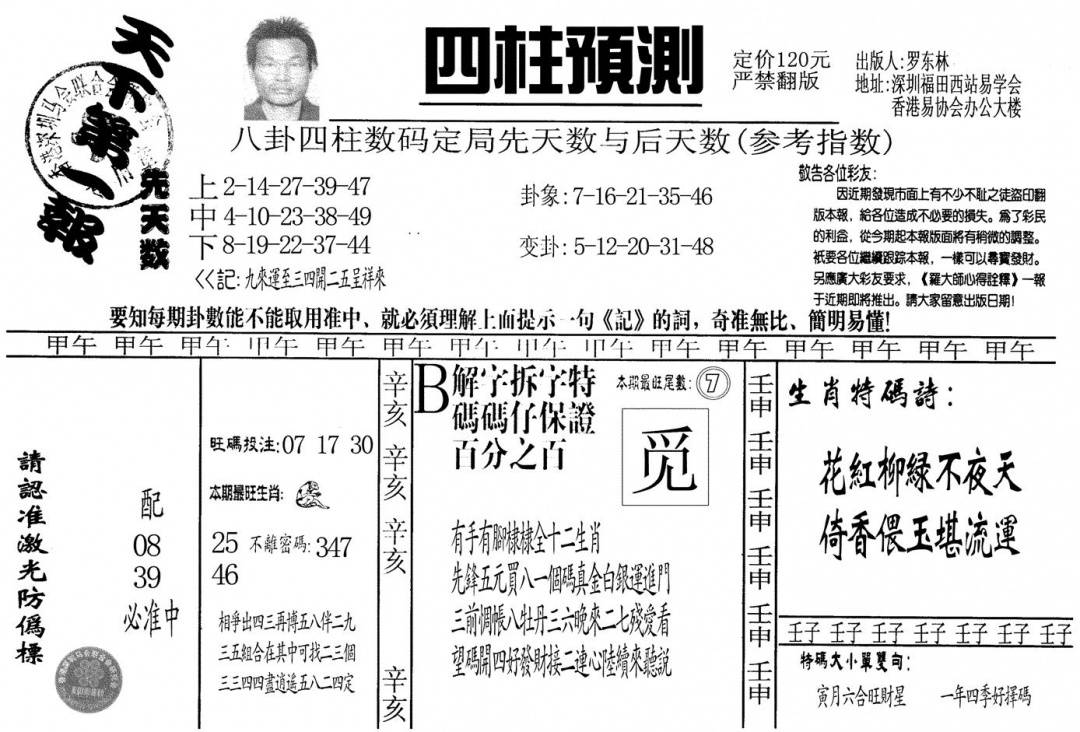 天下第一報
四柱預測
定价120元
严禁翻版
出版人:罗东林
地址:深圳福田西站易学会
香港易协会办公大楼
八卦四柱数码定局先天数与后天数(参考指数)
先天数
上 2-14-27-39-47
中 4-10-23-38-49
下 8-19-22-37-44
卦象:7-16-21-35-46
变卦:5-12-20-31-48
<<記:九來運至三四開二五呈祥來
敬告各位彩友:
因近期發現市面上有不少不耻之徒盜印翻
版本報，給各位造成不必要的損失。爲了彩民
的利益，從今期起本報版面將有稍微的調整。
衹要各位繼續跟踪本報，一樣可以尋寶發財。
另應廣大彩友要求，《羅大師心得詮釋》一報
于近期即將推出。請大家留意出版日期!
要知每期卦數能不能取用准中、就必須理解上面提示一句《記》的詞，奇准無比、簡明易懂!
甲午 甲午 甲午 甲午 甲午 甲午 甲午 甲午 甲午 甲午 甲午 甲午 甲午 甲午 甲午
請認准激光防僞標
配
08
39
必准中
旺碼投注:07 17 30
本期最旺生肖:
25 不離密碼:347
46
相爭出四三再博五八伴二九
三五組合在其中可找二三個
三三四四盡逍遥五八二四定
辛亥 辛亥 辛亥 辛亥
B 解字拆字特
碼碼仔保證
百分之百
本期最旺尾數:7
觅
有手有腳棣棣全十二生肖
先鋒五元買八一個碼真金白銀運進門
三前惆帳八牡丹三六晚來二七殘愛看
望碼開四好發財接二連心陸續來聽説
壬申 壬申 壬申 壬申 壬申 壬申
生肖特碼詩:
花紅柳緑不夜天
倚香偎玉堪流運
壬子 壬子 壬子 壬子 壬子 壬子 壬子
特碼大小單雙句:
寅月六合旺財星 一年四季好擇碼